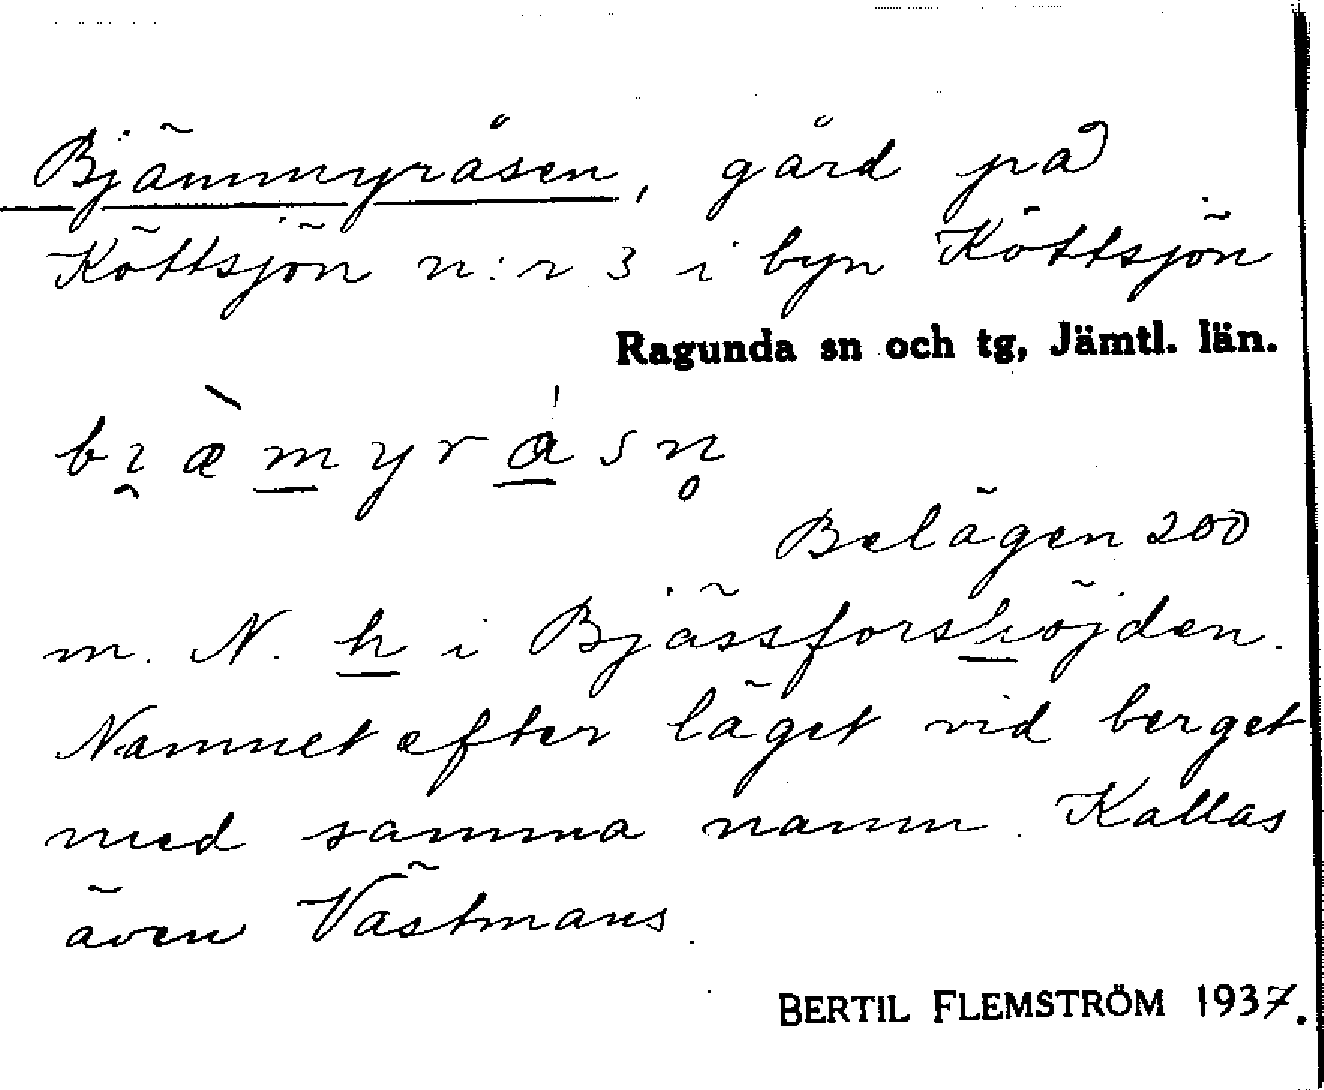 Bjämmyråsen, gård på
Köttsjön n:r 3 i byn Köttsjön
Ragunda sn och tg, Jämtl. län.
bi̯æ̀m̲yrá̲sn̥
Belägen 200
m. N. h̲ i Bjässforshöjden.
Namnet efter läget vid berget
med samma namn. Kallas
även Västmans.
BERTIL FLEMSTRÖM 1937.